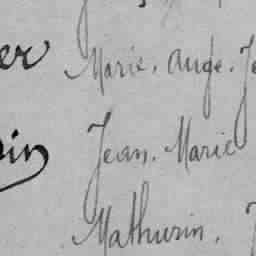 er Marie. Ange. Je
in Jean. Marie
Mathurin. J